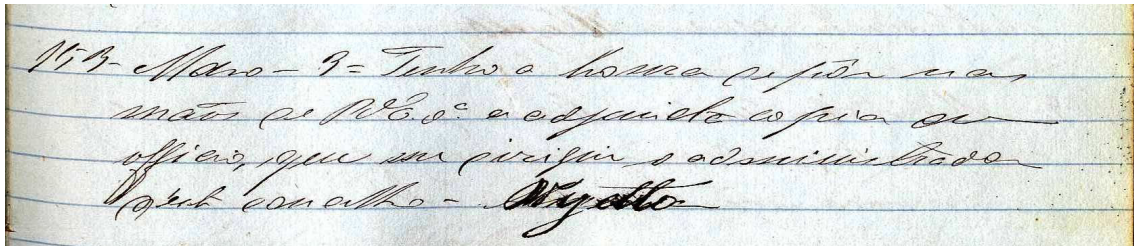 Março - 3 = Tenho a honra de pôr nas
mãos de V. Ex.ª a adjuncta copia do
officio, que me dirigiu o administrador
d'este concelho -